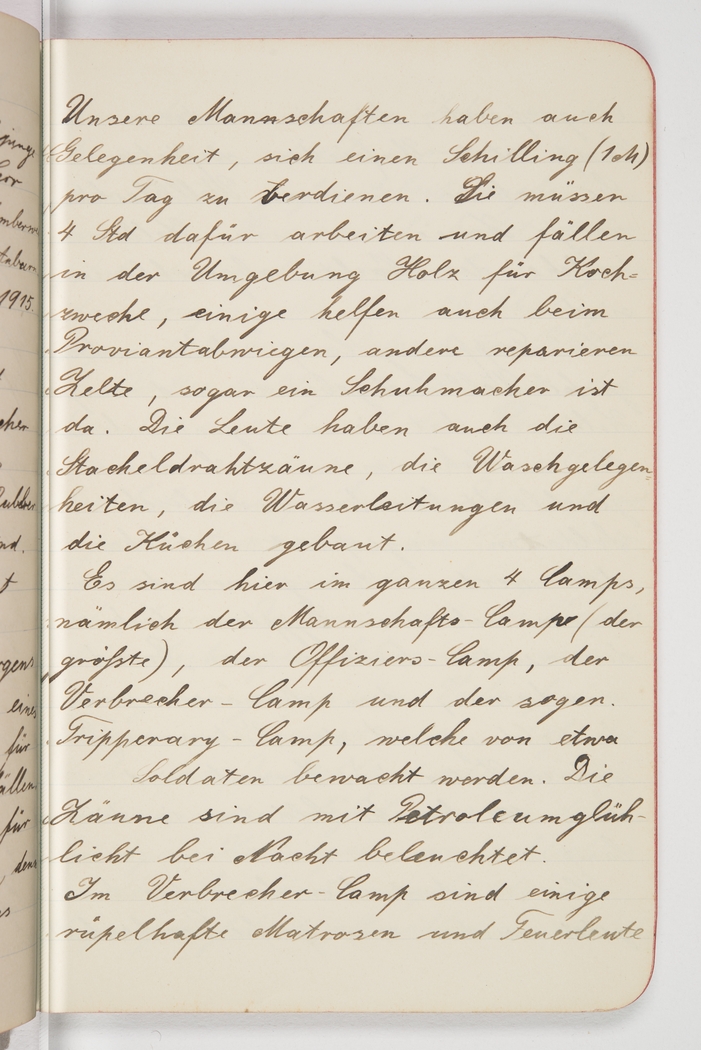 Unsere Mannschaften haben auch
Gelegenheit, sich einen Schilling (1 M)
pro Tag zu verdienen. Sie müssen
4 Std dafür arbeiten und fällen
in der Umgebung Holz für Koch-
zwecke, einige helfen auch beim
Proviantabwiegen, andere reparieren
Zelte, sogar ein Schuhmacher ist
da. Die Leute haben auch die
Stacheldrahtzäune, die Waschgelegen-
heiten, die Wasserleitungen und
die Küchen gebaut.
Es sind hier im ganzen 4 Camps,
nämlich der Mannschafts-Camp (der
größte), der Offiziers-Camp, der
Verbrecher-Camp und der sogen.
Tripperary-Camp, welche von etwa
Soldaten bewacht werden. Die
Zäune sind mit Petroleumglüh-
licht bei Nacht beleuchtet.
Im Verbrecher-Camp sind einige
rüpelhafte Matrosen und Feuerleute